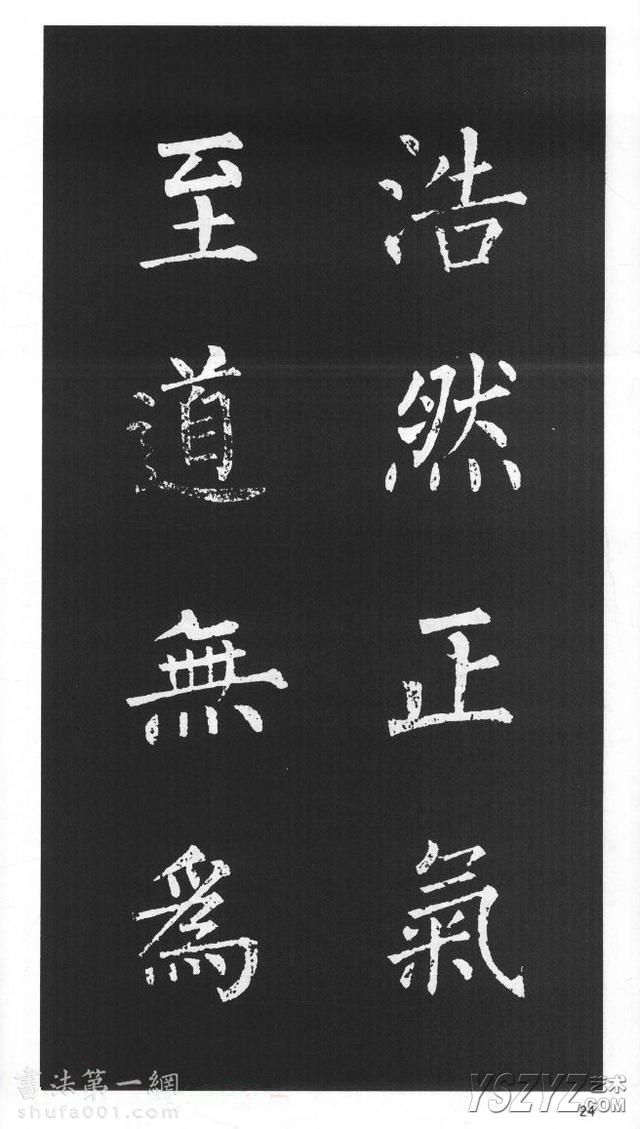 浩然正氣
至道無爲
書法第一網
shufa001.com
YSZYZ艺术
.COM
24